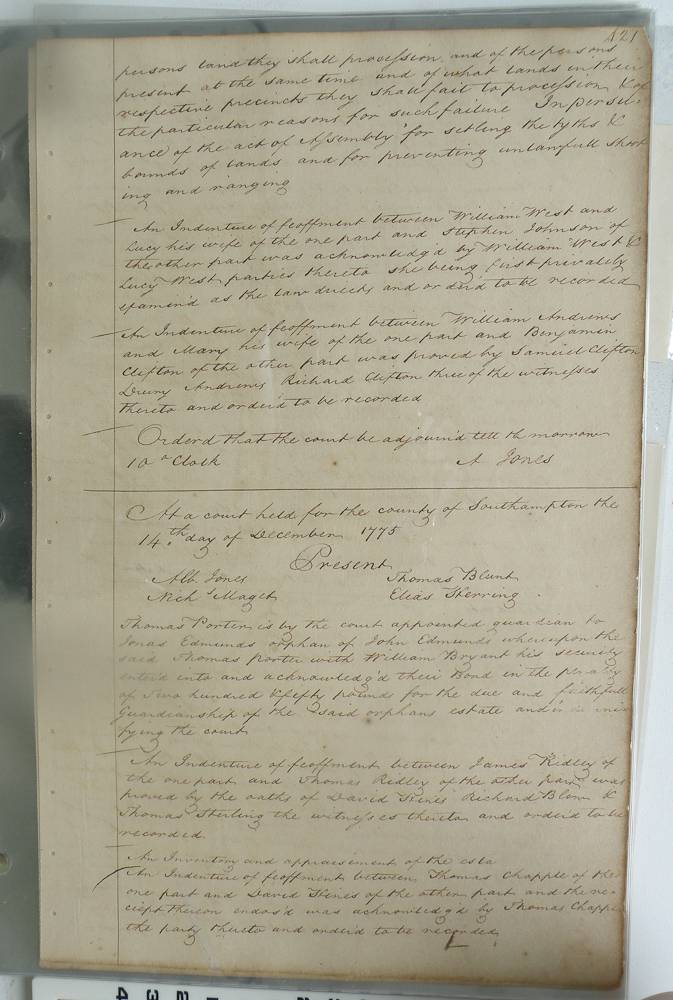 421
persons land they shall procession and of the persons
present at the same time and of what lands in their
respective precincts they shall fail to procession & of
the particular reasons for such failure In persu-
ance of the act of Assembly for setling the tythes &
bounds of lands and for preventing unlawfull shoot
ing and ranging
An Indenture of feoffment between William West and
Lucy his wife of the one part and Stephen Johnson of
the other part was acknowledg'd by William West &
Lucy West parties thereto she being first privately
examin'd as the law directs and order'd to be recorded
An Indenture of feoffment between William Andrews
and Mary his wife of the one part and Benjamin
Clifton of the other part was proved by Samuel Clifton
Drury Andrews Richard Clifton three of the witnesses
thereto and order'd to be recorded
Orderd that the court be adjourn'd till to morrow
10 o Clock A Jones
At a court held for the county of Southampton the
14th day of December 1775
Present
Alb Jones Thomas Blunt
Nichs Maget Elias Herring
Thomas Porter is by the court appointed guardian to
Jonas Edmunds orphan of John Edmunds whereupon the
said Thomas Porter with William Bryant his security
enter'd into and acknowledg'd their Bond in the penalty
of Two hundred & fefty pounds for the due and faithfull
Guardianship of the said orphans estate and
fying the court
An Indenture of feoffment between James Ridley of
the one part and Thomas Ridley of the other part was
proved by the oaths of David Hines Richard Blow &
Thomas Sterling the witnesses thereto and order'd to be
recorded
An Inventory and appraisement of the esta
An Indenture of feoffment between Thomas Chapple of the
one part and David Hines of the other part and the re-
ciept thereon endors'd was acknowledg'd by Thomas Chapple
the party thereto and order'd to be recorded